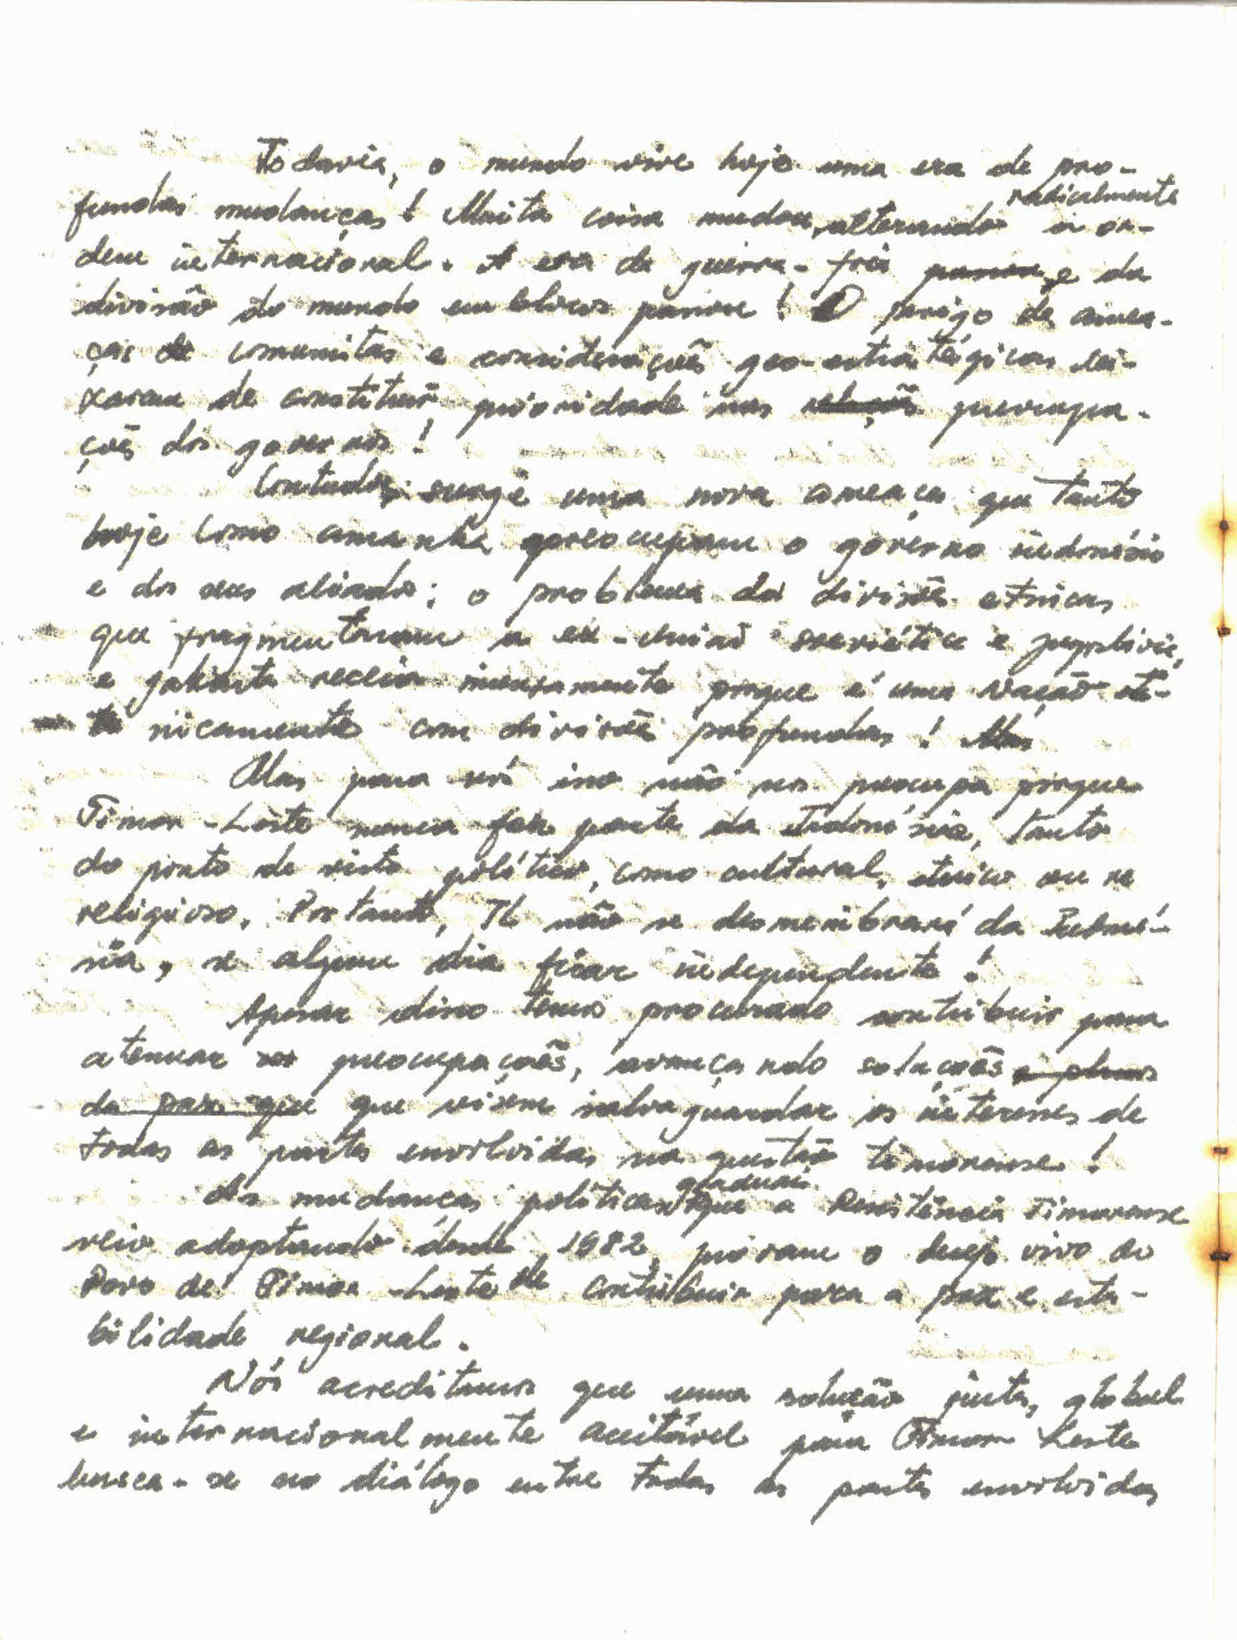 Todavia, o mundo vive hoje uma era de pro-
fundas mudanças! Muita coisa mudou, alterando radicalmente a or-
dem internacional. A era da guerra-fria passou e da
divisão do mundo em blocos passou! O perigo de amea-
ças de comunistas e considerações geo-estratégicas dei-
xaram de constituir prioridade nas relações preocupa-
ções dos governos!
Contudo, surge uma nova ameaça que tanto
hoje como amanhã preocupam o govêrno indonésio
e dos seus aliados: o problema da divisões etnicas
que fragmentaram a ex-União soviética e jugoslávia,
e Jakarta receia imensamente porque é uma nação et-
nicamente com divisões profundas! Mas
Mas para nós isso não nos preocupa porque
Timor-Leste nunca fez parte da Indonésia, tanto
do ponto de vista político, como cultural, etnico ou re
religioso. Portanto, TL não se desmembrará da Indoné-
sia, se algum dia ficar independente!
Apesar disso temos procurado contribuir para
atenuar as preocupações, avançando soluções e planos
de paz que que visem salvaguardar os interesses de
todas as partes envolvidas na questão timorense!
As mudanças políticas graduais que a Resistência Timorense
veio adoptando desde 1982, provam o desejo vivo do
Povo de Timor-Leste de contribuir para a paz e esta-
bilidade regional.
Nós acreditamos que uma solução justa, global
e internacionalmente aceitável para Timor Leste
busca-se no diálogo entre todas as partes envolvidas